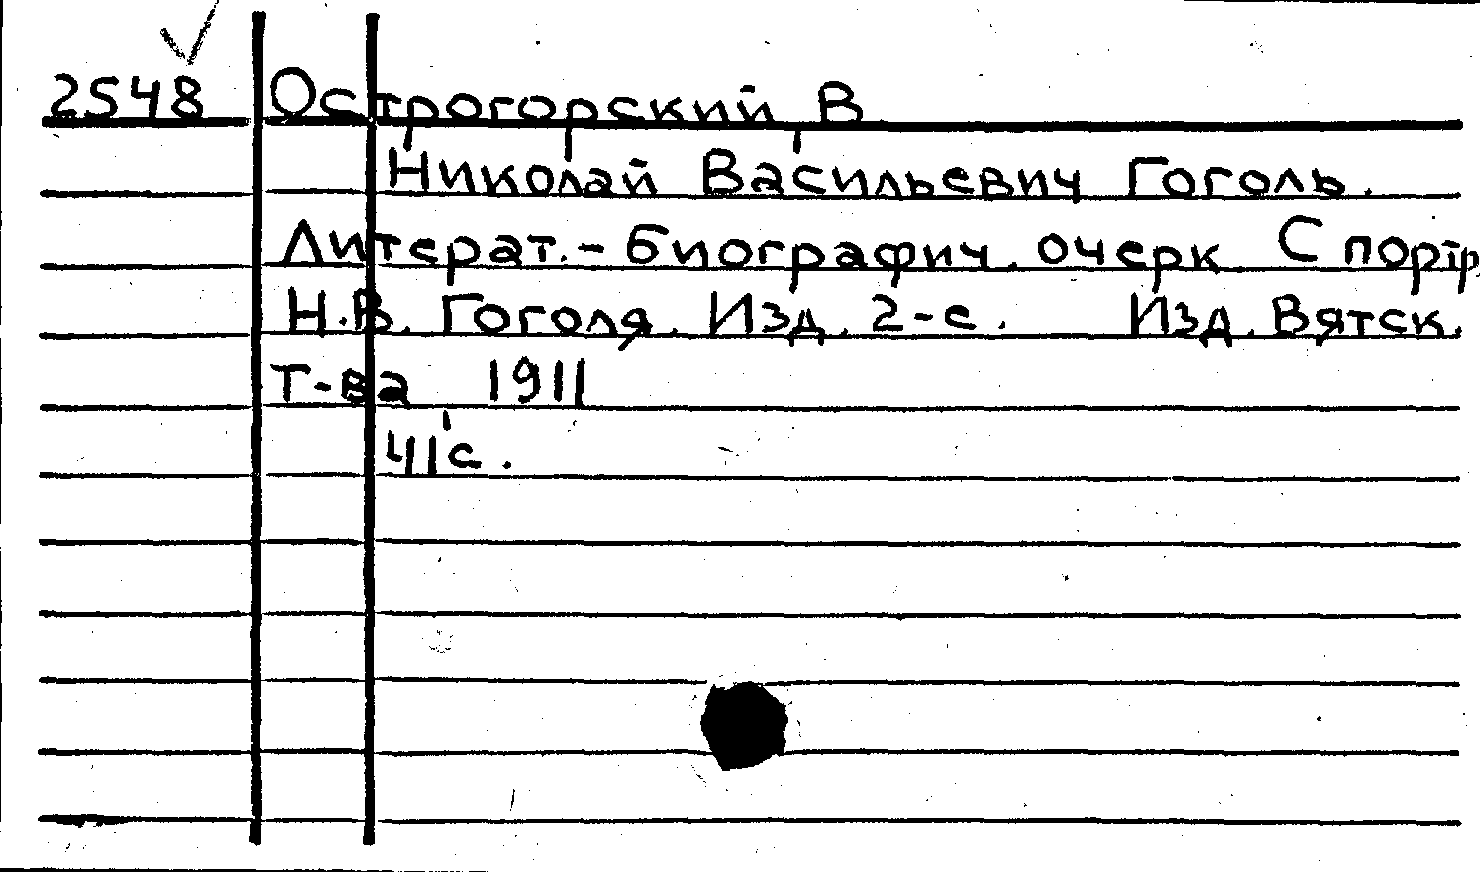 2548 Острогорский, В
Николай Васильевич Гоголь.
Литерат.-биографич. очерк С портр
Н.В. Гоголя. Изд. 2-е. Изд. Вятск.
т-ва 1911
41 с.